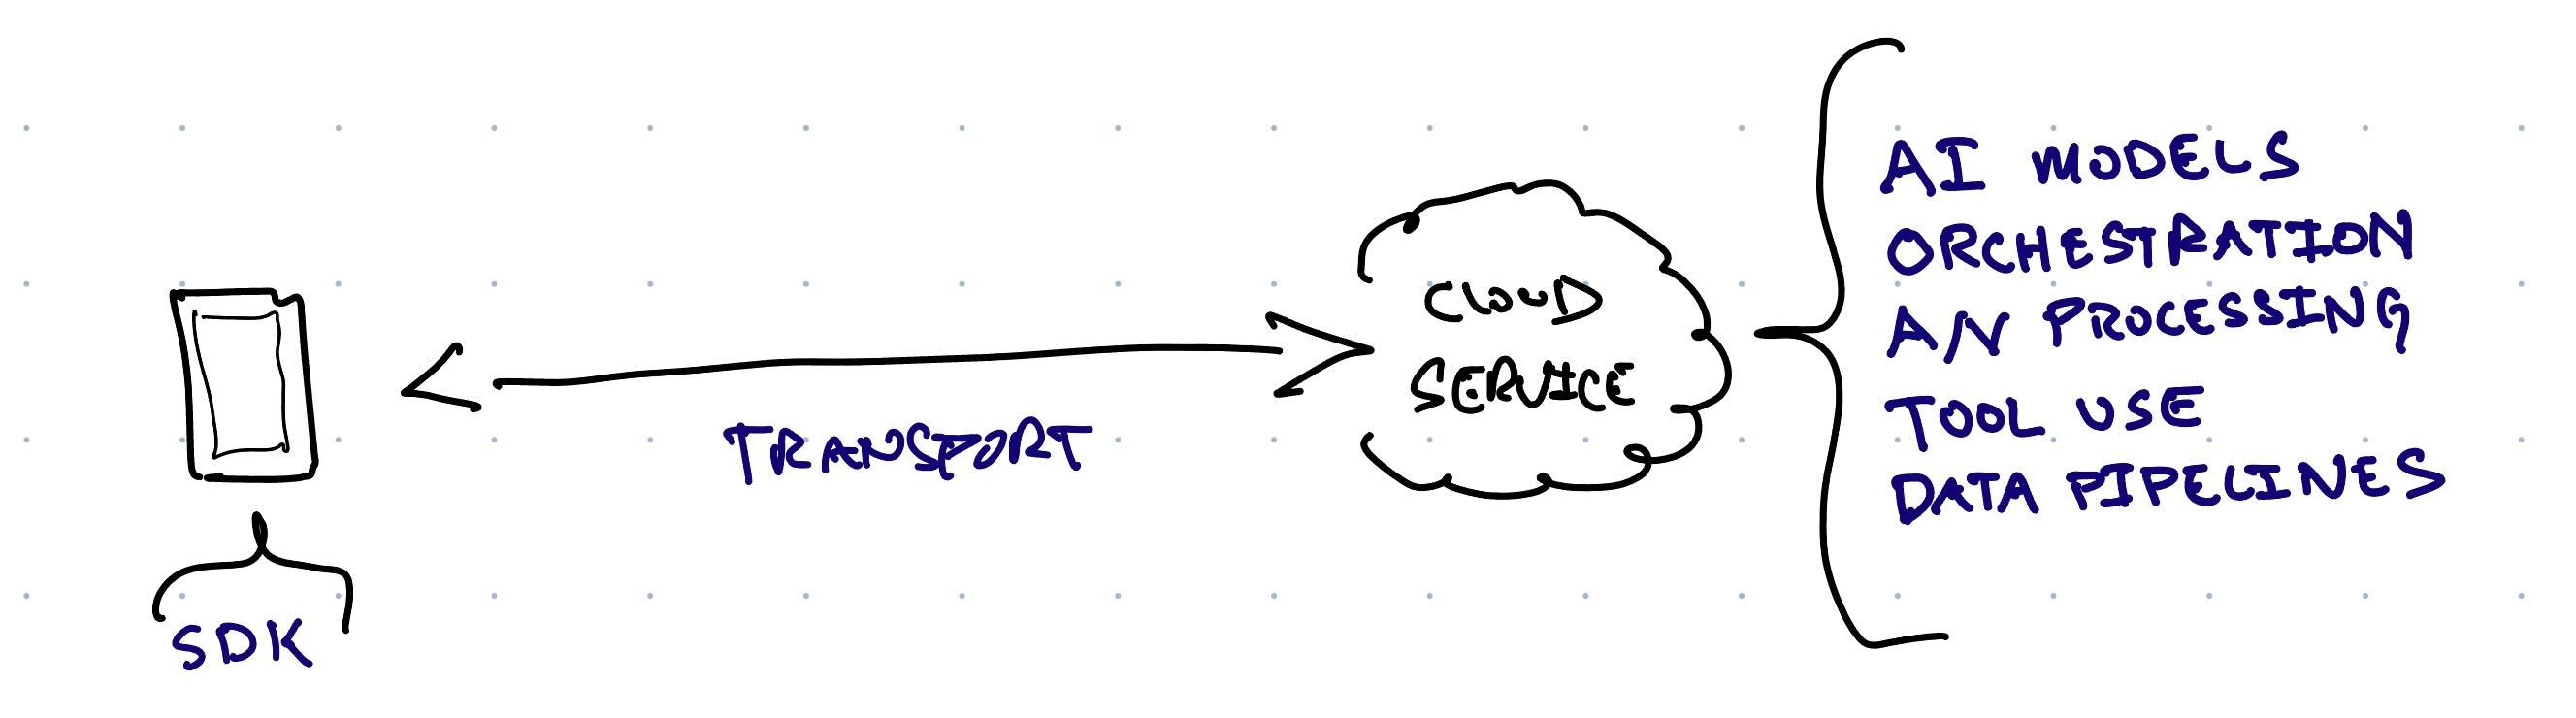 SDK
TRANSPORT
CLOUD
SERVICE
AI MODELS
ORCHESTRATION
A/V PROCESSING
TOOL USE
DATA PIPELINES